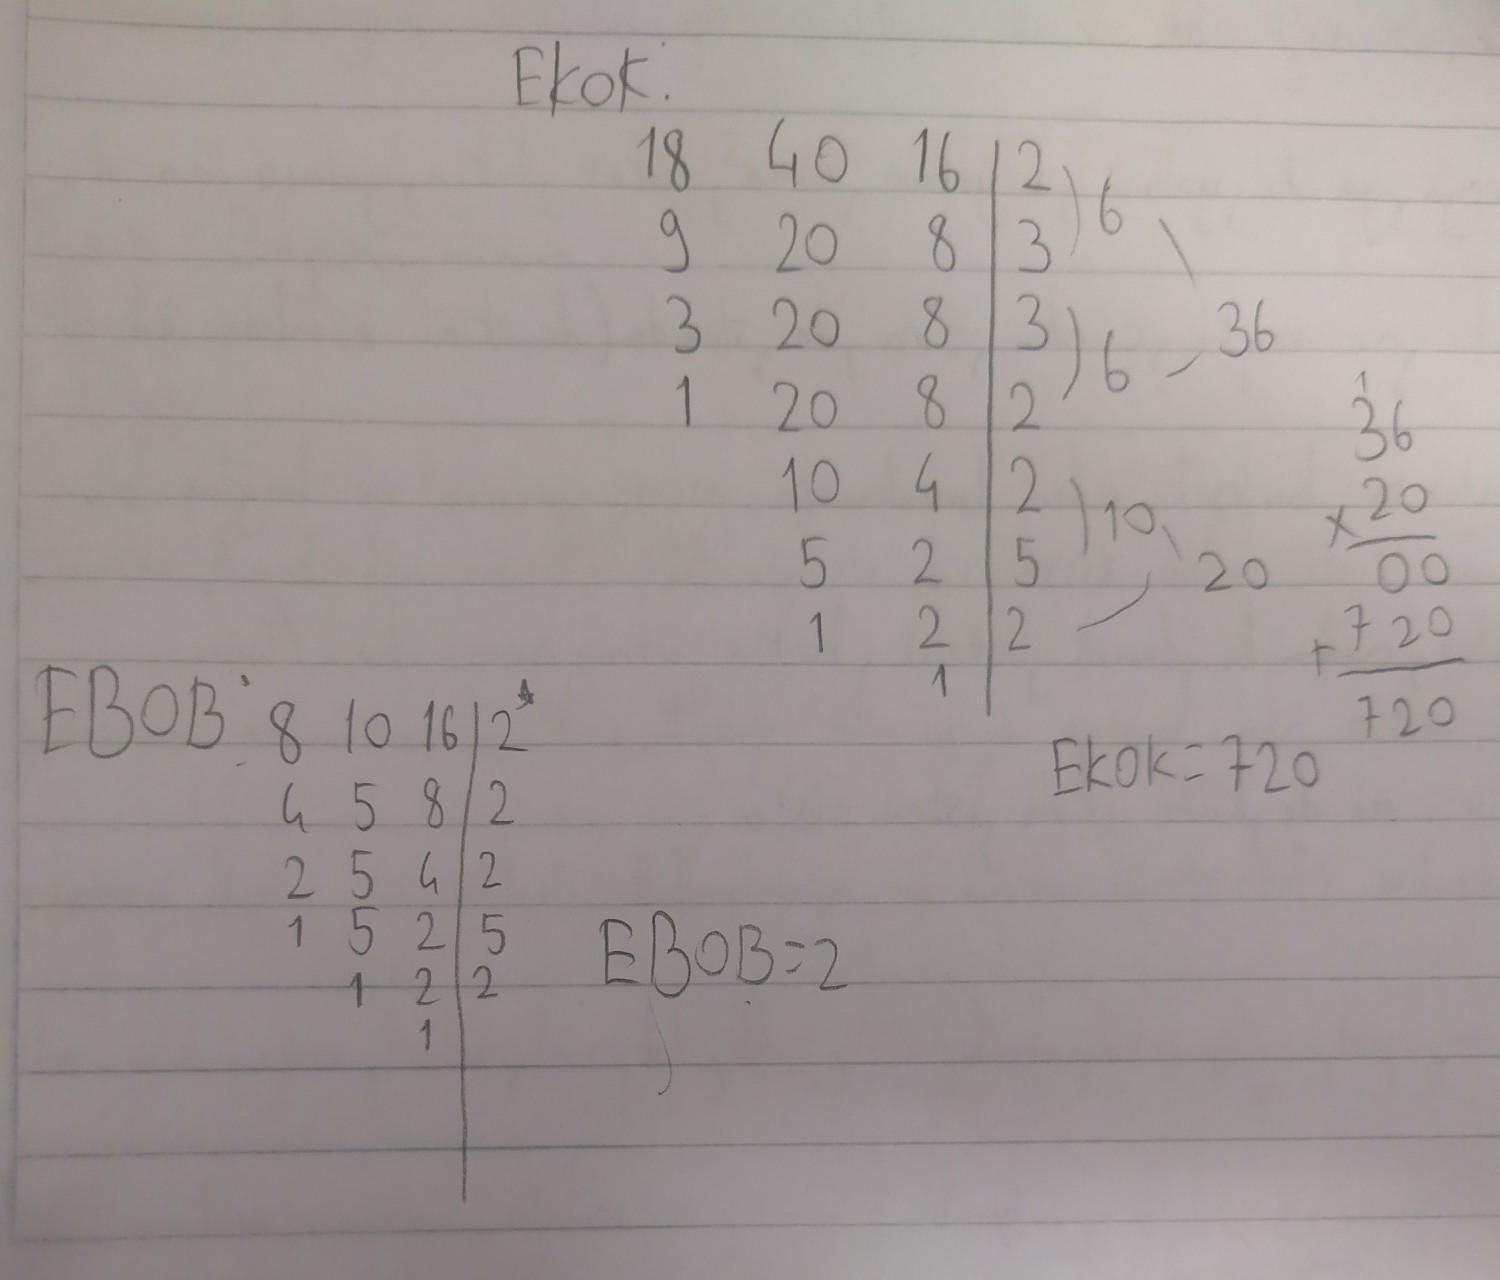 Ekok:
18 40 16 | 2 ) 6
9 20 8 | 3
3 20 8 | 3 ) 6 36
1 20 8 | 2
10 4 | 2 ) 10
5 2 | 5 20
1 2 | 2
1
36
x 20
00
+ 720
720
Ekok=720
EBOB: 8 10 16 | 2*
4 5 8 | 2
2 5 4 | 2
1 5 2 | 5
1 2 | 2
1
EBOB=2